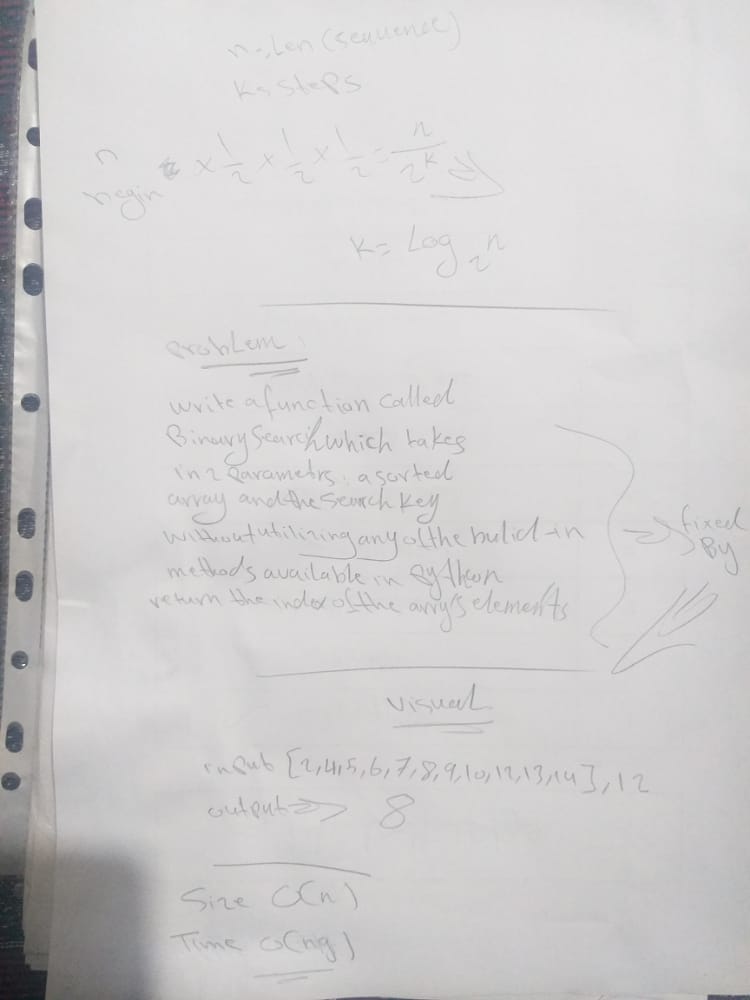 n = Len (sequence)
K = steps
n × 1/2 × 1/2 × 1/2 = n/2^k
K = Log 2 n
problem:
write a function called
Binary Search which takes
in 2 parametrs: a sorted
array and the Search Key
without utilizing any of the bulid-in
methods available in python
return the index of the arry's elements
=> fixed
By
Visual
input [2,4,5,6,7,8,9,10,12,13,14], 12
output => 8
Size O(n)
Time O(ng)